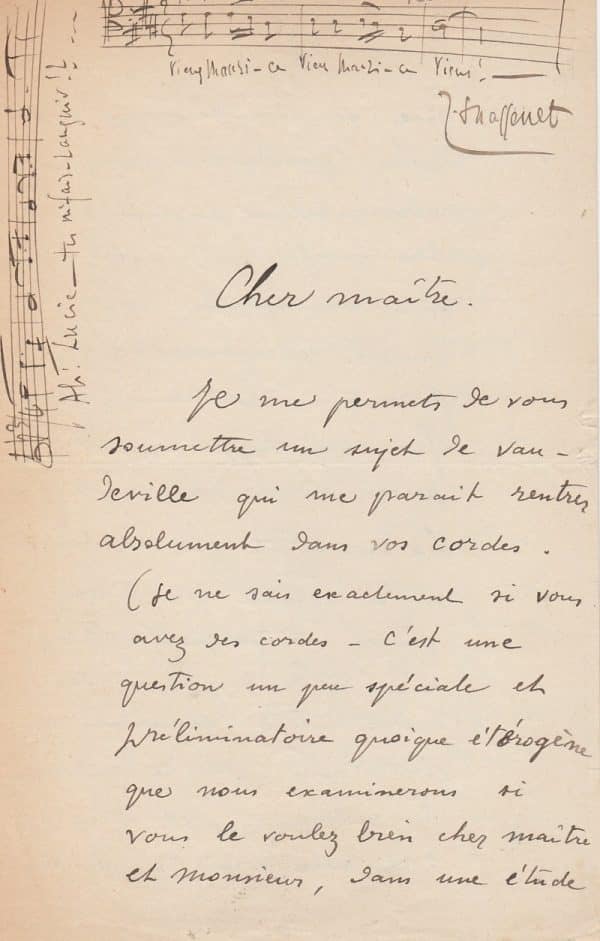 Viens Manzi-ca Viens Manzi-ca Viens!
J. Massenet
Ah! Lucie - tu m'fais - languir!!
Cher maître.
Je me permets de vous
soumettre un sujet de vau-
deville qui me parait rentrer
absolument dans vos cordes.
(Je ne sais exactement si vous
avez des cordes - C'est une
question un peu spéciale et
préliminatoire quoique étérogène
que nous examinerons si
vous le voulez bien cher maître
et monsieur, dans une étude